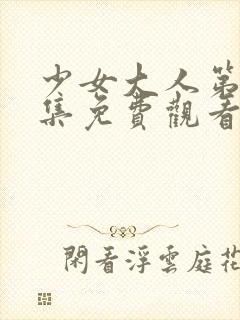 少女大人第
集免費觀看
閑看浮雲庭花